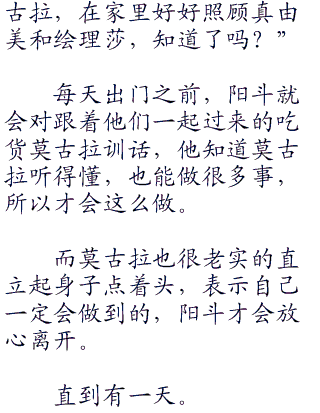 古拉，在家里好好照顾真由
美和绘理莎，知道了吗？”
每天出门之前，阳斗就
会对跟着他们一起过来的吃
货莫古拉训话，他知道莫古
拉听得懂，也能做很多事，
所以才会这么做。
而莫古拉也很老实的直
立起身子点着头，表示自己
一定会做到的，阳斗才会放
心离开。
直到有一天。